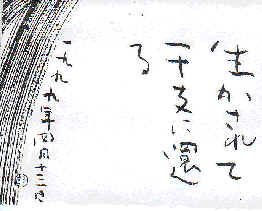 生かされて
干支に還
る
一九九九年四月十三日